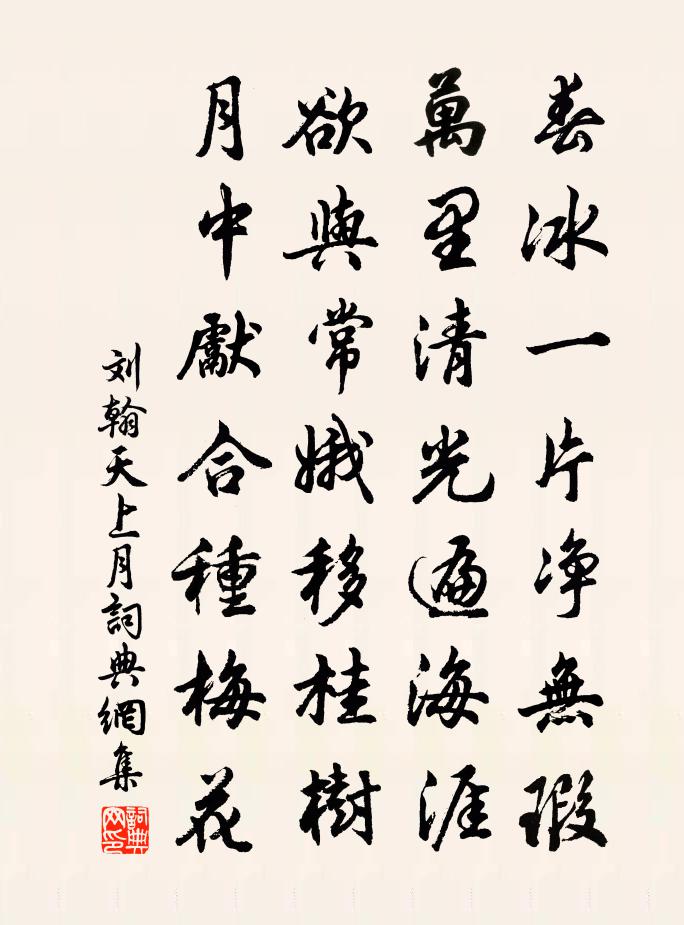 春冰一片净無瑕
萬里清光遍海涯
欲與常娥移桂樹
月中獻合種梅花
刘翰天上月詞典網集
詞典网印